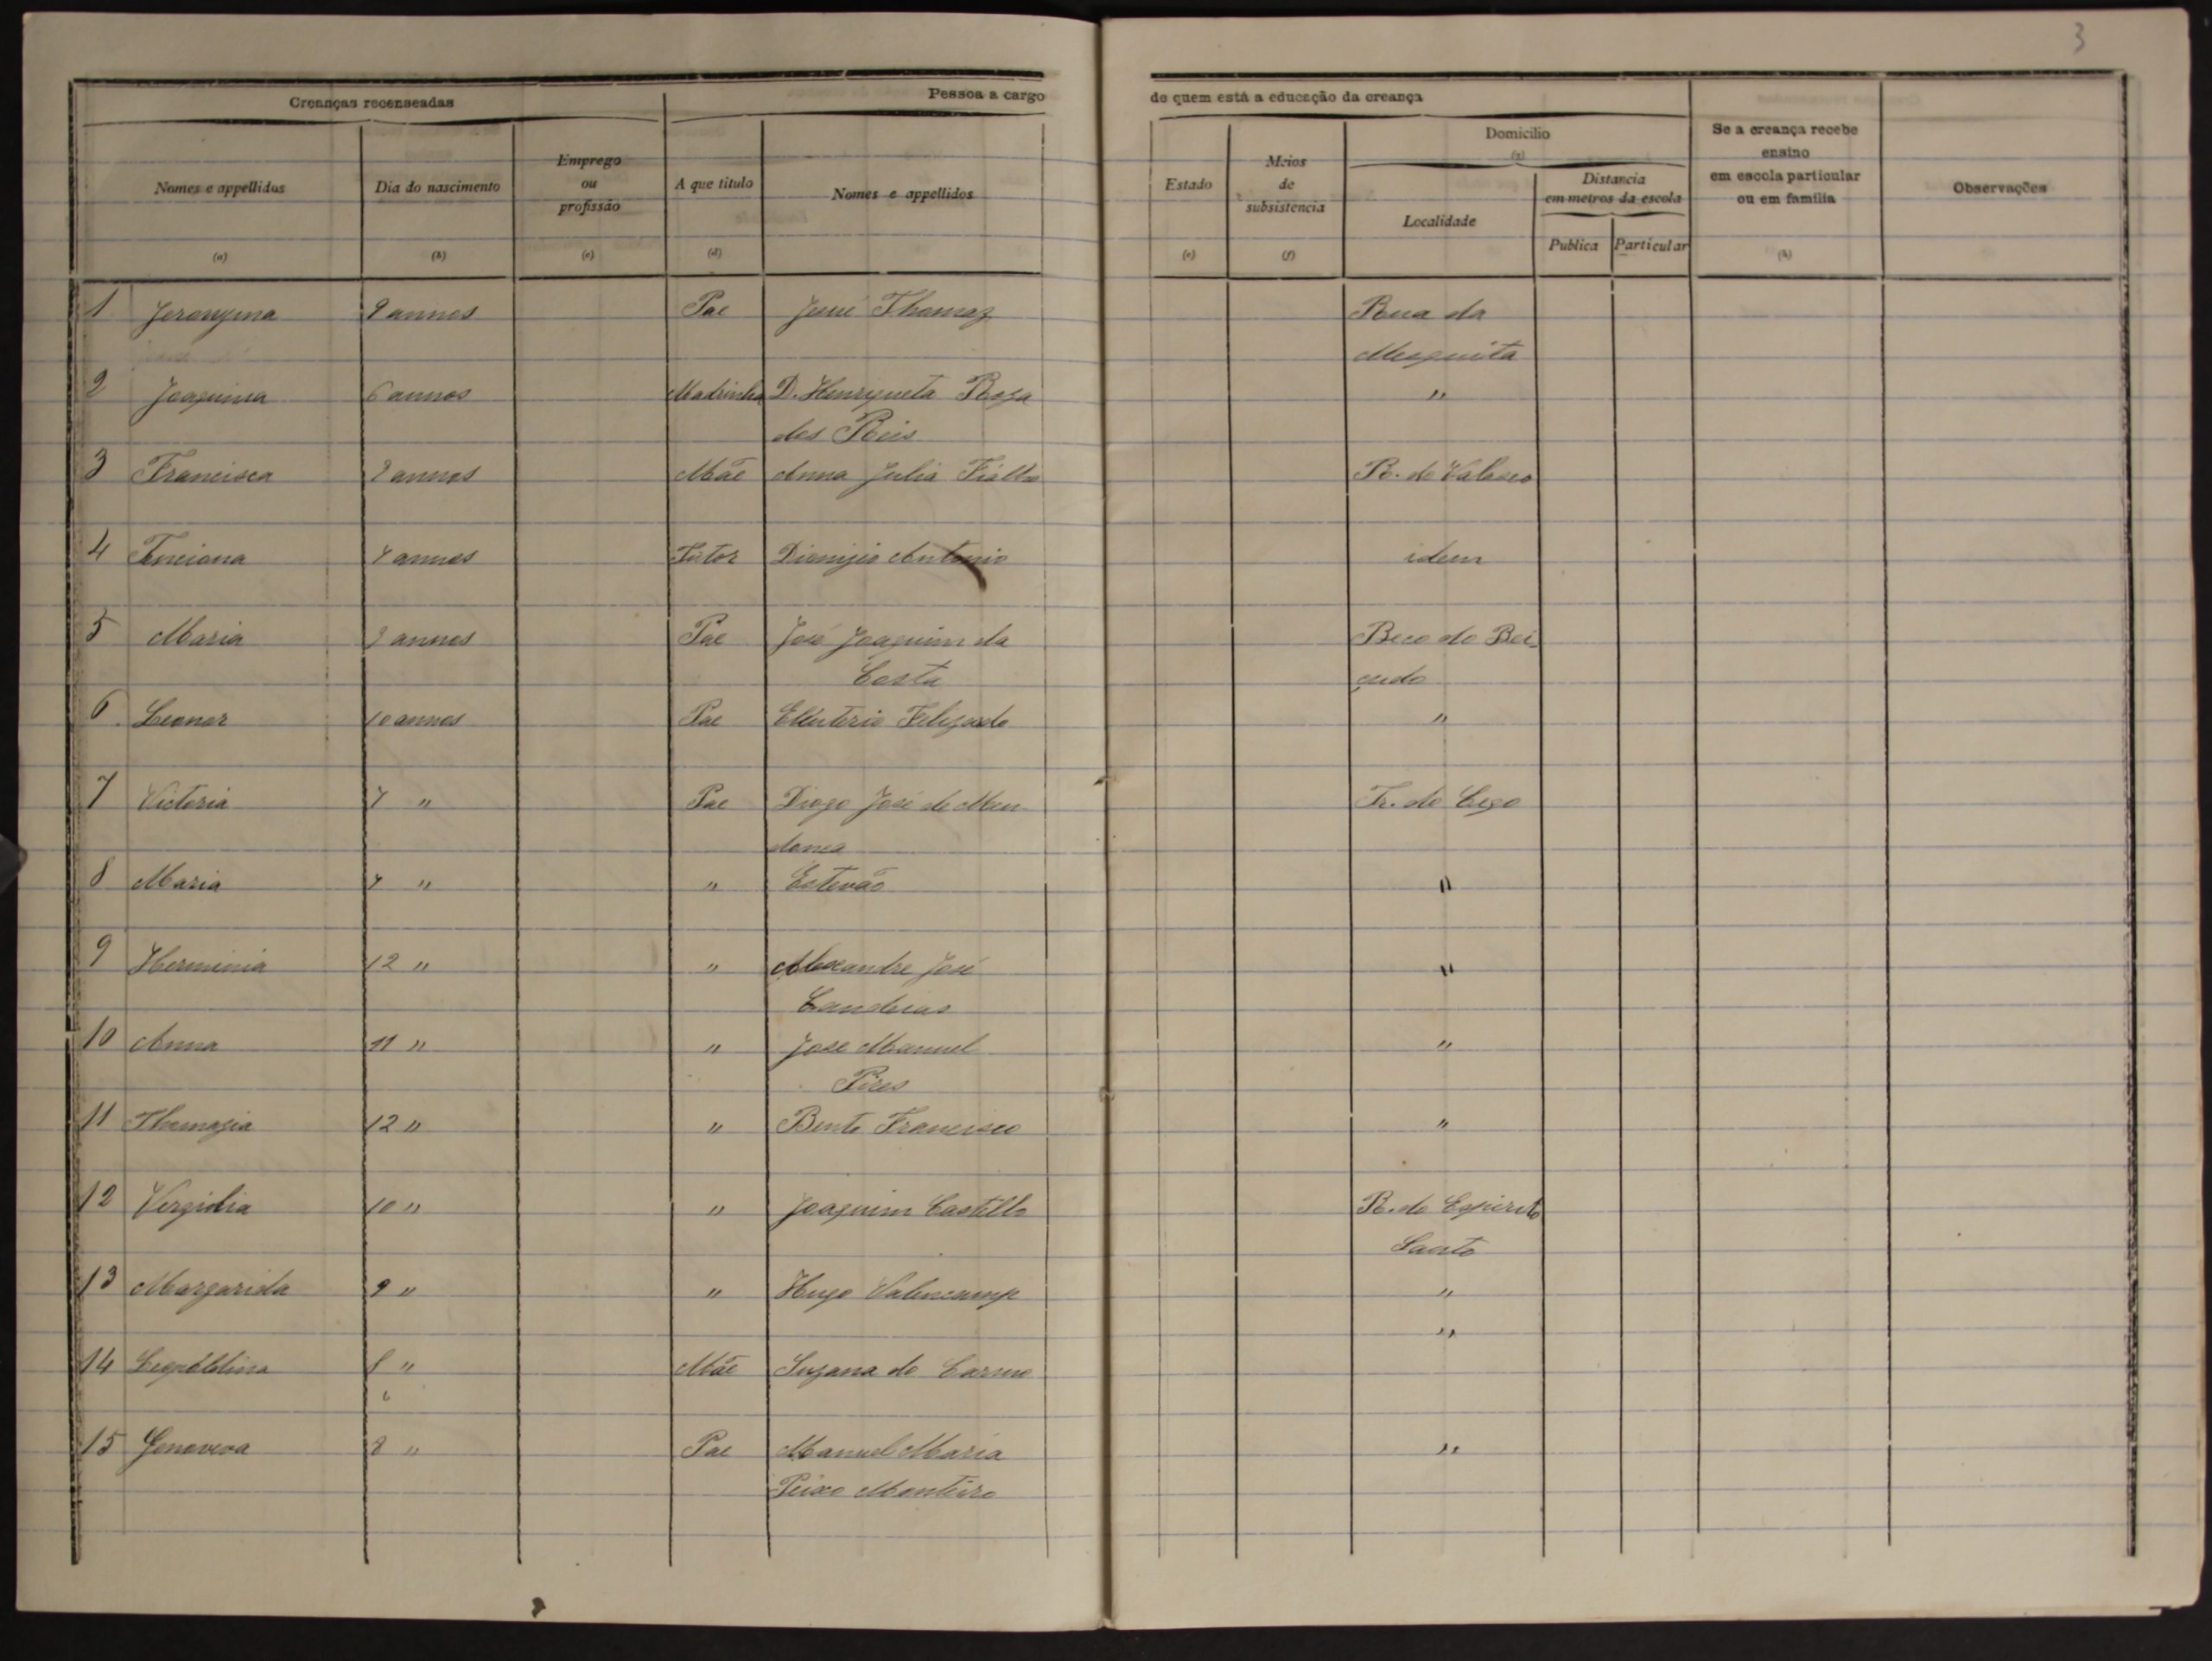 3
Creanças recenseadas
Pessoa a cargo de quem está a educação da creança
Domicilio
(g)
Se a creança recebe ensino em escola particular ou em familia
Observações
Nomes e appellidos
Dia do nascimento
Emprego ou profissão
A que titulo
Nomes e appellidos
Estado
Meios de subsistencia
Localidade
Distancia em metros da escola
Publica Particular
(a) (b) (c) (d) (e) (f) (h)
1 Jeronyma 9 annos Pae José Thomaz Rua da
Mesquita
2 Joaquina 6 annos Madrinha D. Henriqueta Roza "
dos Reis
3 Francisca annos Mãe Anna Julia Fialho R. do Valasco
4 annos Tutor Dionizio Antonio idem
5 Maria annos Pae José Joaquim da Beco do Bei-
Costa çudo
6 Leonor 10 annos Pae Eleuterio Felizardo "
7 Victoria 7 " Pae Diogo José de Men Tr. do Cego
donça
8 Maria 7 " " Estevão "
9 Herminia 12 " " Alexandre José "
Candeias
10 Anna 11 " " José Manuel "
Pires
11 Thomazia 12 " " Bento Francisco "
12 Virgidia 10 " " Joaquim Castello R. do Espirito
Santo
13 Margarida 9 " " Hugo Valencamp "
"
14 Leopoldina 8 " Mãe Suzana do Carmo
6
15 Genoveva 8 " Pae Manuel Maria "
Peixe Monteiro